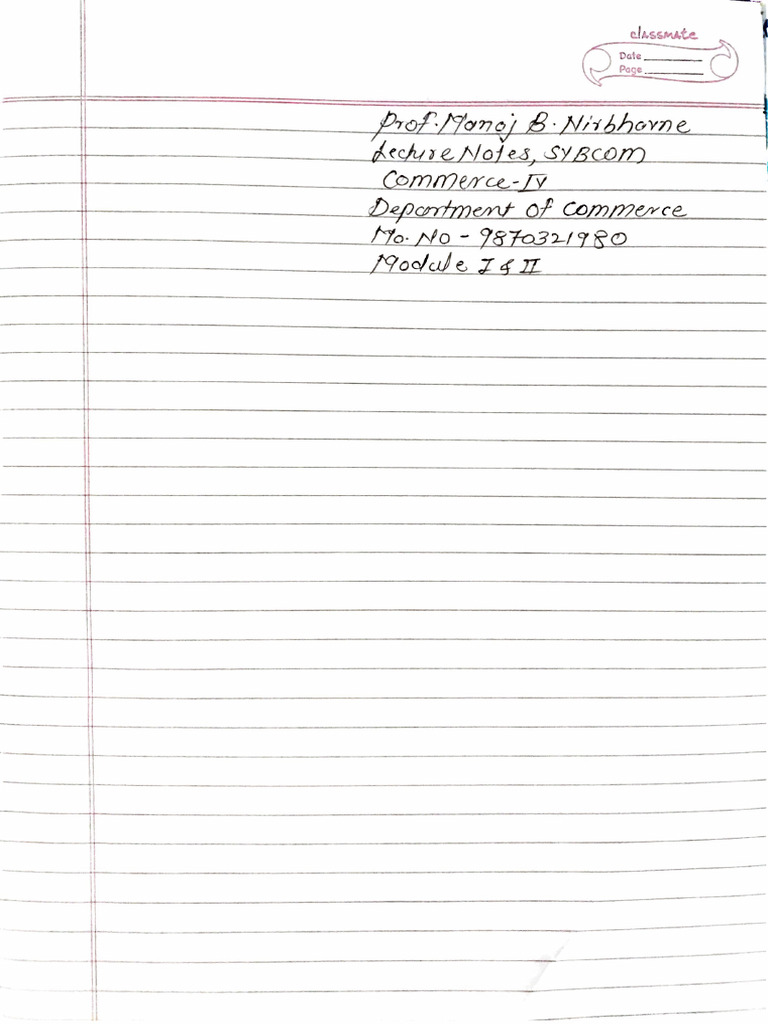 classmate
Date
Page
Prof. Manoj B. Nirbhavne
Lecture Notes, SYBCOM
Commerce-IV
Department of Commerce
Mo. No - 9870321980
Module I & II